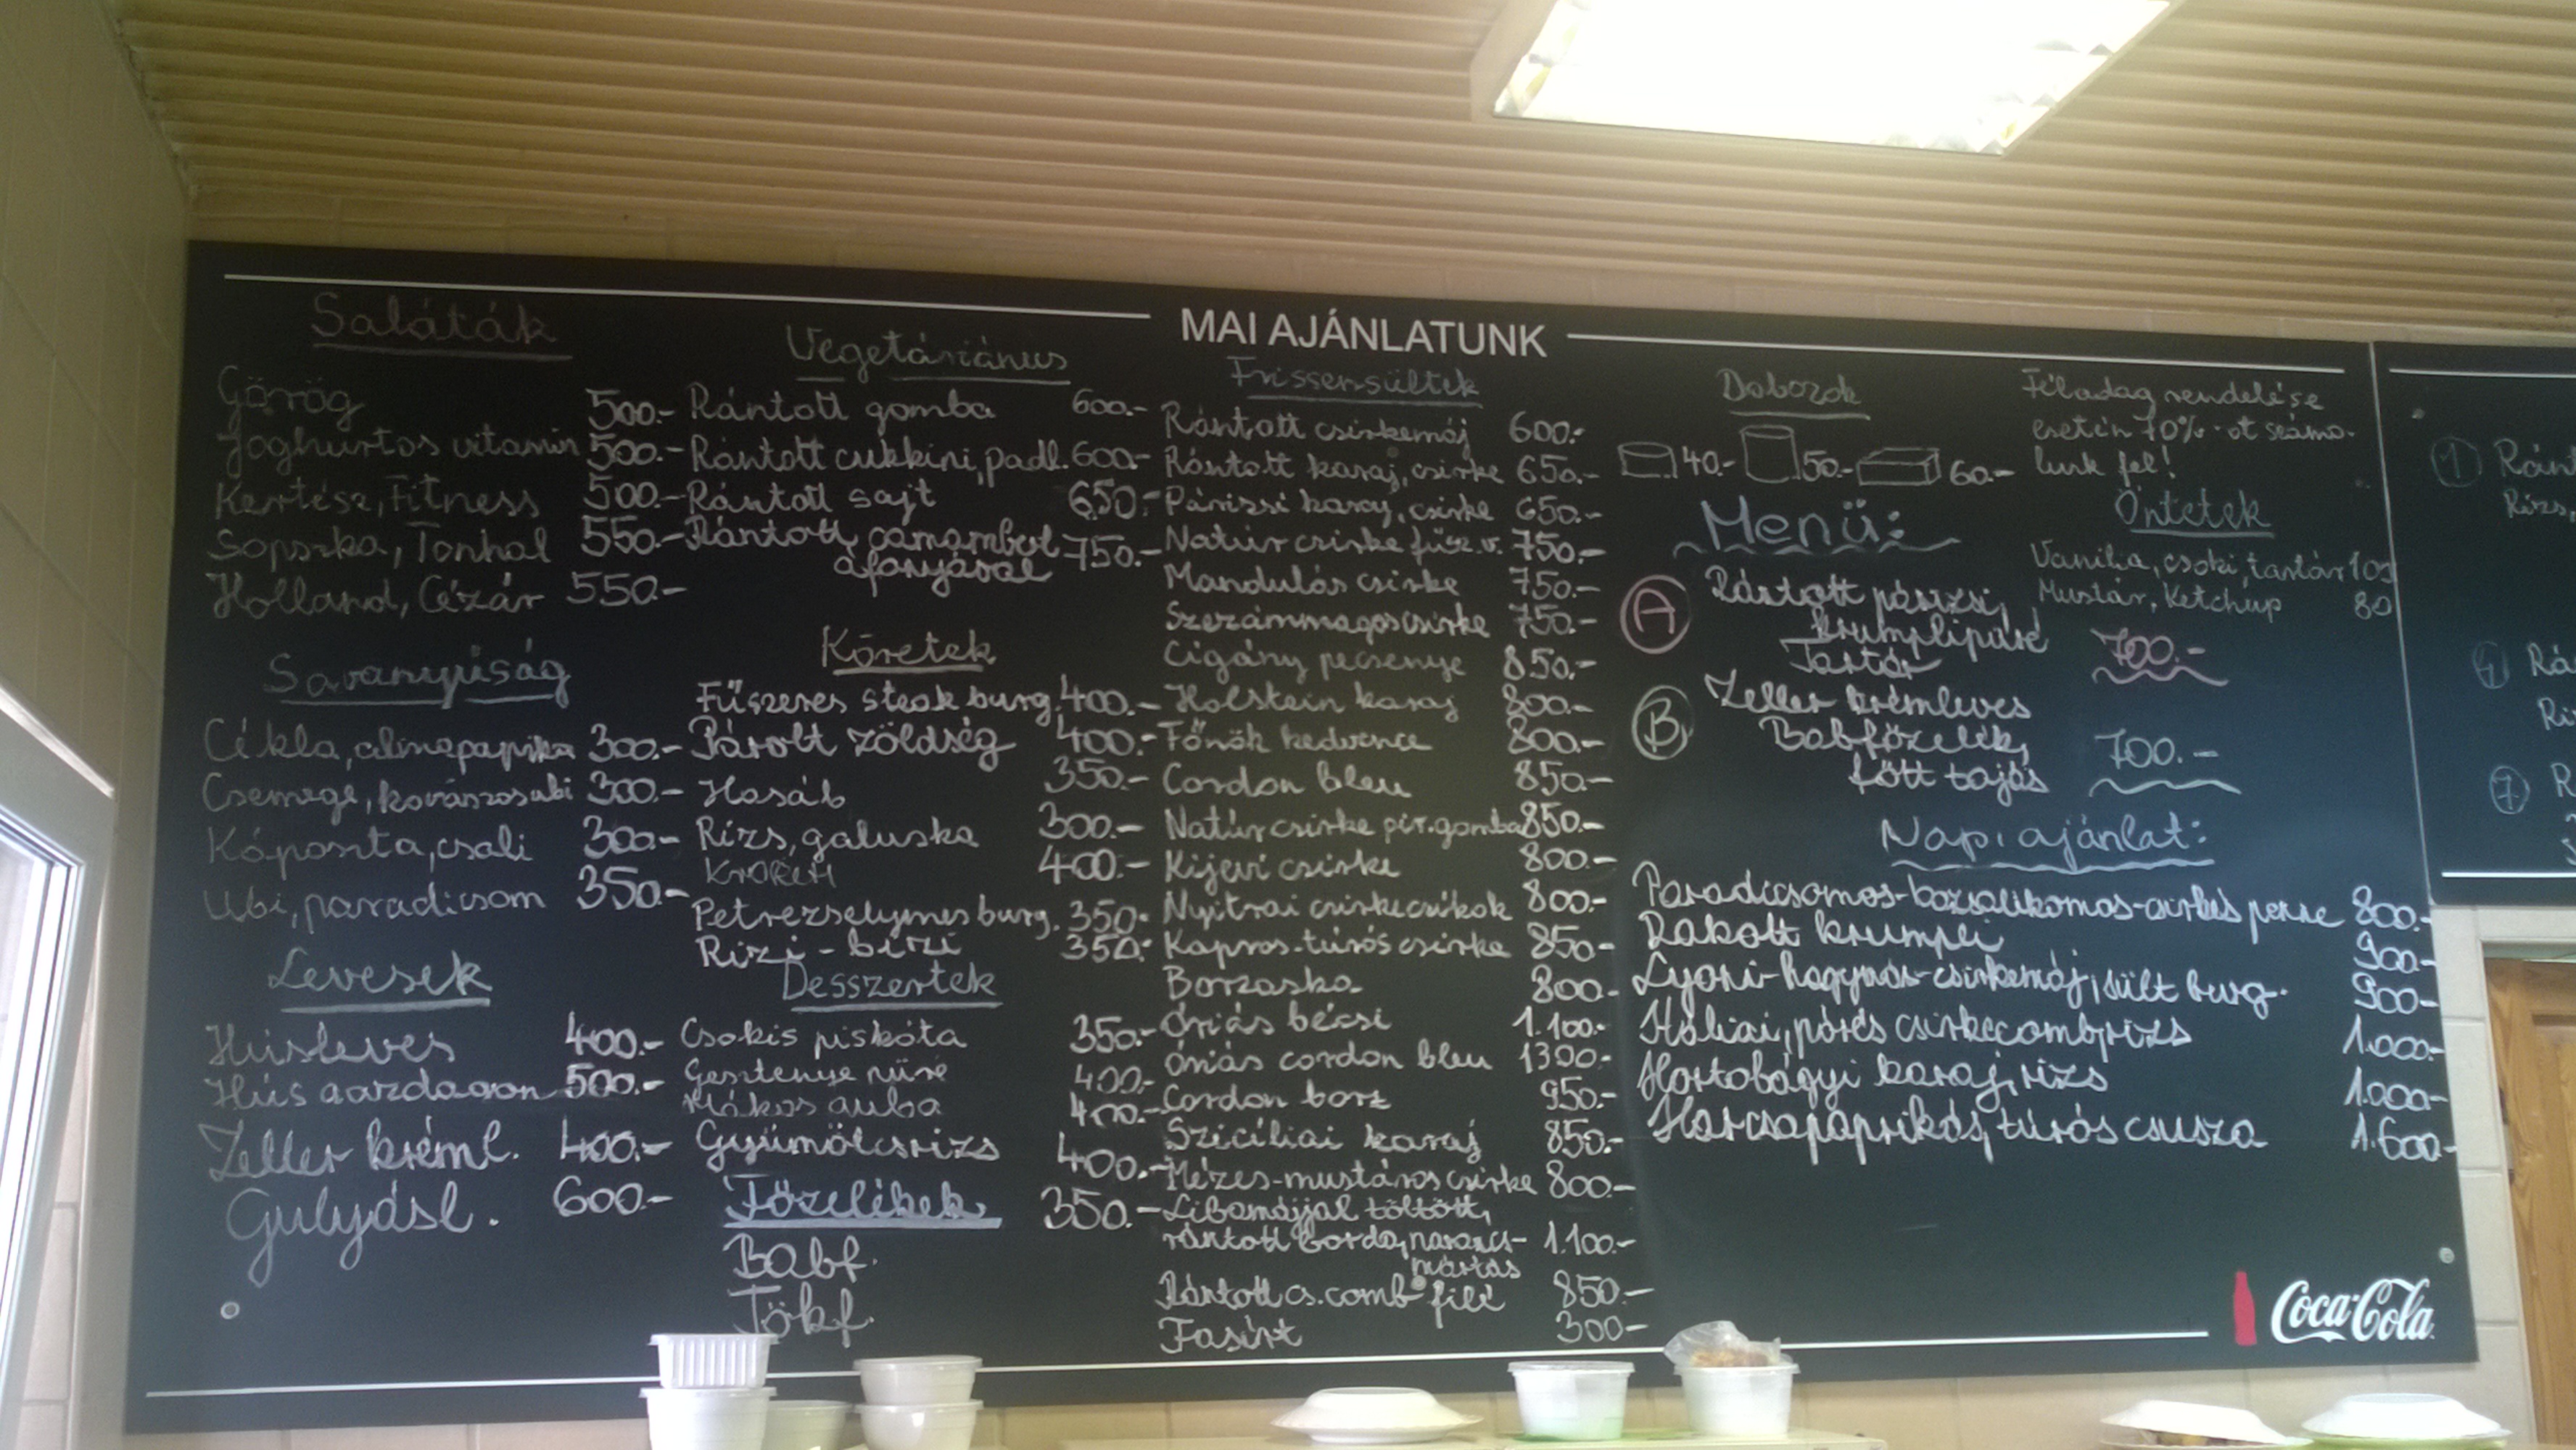 MAI AJÁNLATUNK
Saláták
Görög 500.-
Joghurtos vitamin 500.-
Kertész, Fitness 500.-
Sopszka, Tonhal 550.-
Holland, Cézár 550.-
Savanyúság
Cékla, almapaprika 300.-
Csemege, kovászosubi 300.-
Káposzta, csali 300.-
Ubi, paradicsom 350.-
Levesek
Húsleves 400.-
Hús gazdagon 500.-
Zeller kréml. 400.-
Gulyásl. 600.-
Vegetáriánus
Rántott gomba 600.-
Rántott cukkini, padl. 600.-
Rántott sajt 650.-
Rántott camambert 750.-
áfonyával
Köretek
Fűszeres steak burg. 400.-
Párolt zöldség 400.-
Hasáb 350.-
Rizs, galuska 300.-
Krokett 400.-
Petrezselymes burg. 350.-
Rizi-bizi 350.-
Desszertek
Csokis piskóta 350.-
Gesztenye püré 400.-
Mákos guba 400.-
Gyümölcsrizs 400.-
Főzelékek 350.-
Babf.
Tökf.
Frissensültek
Rántott csirkemáj 600.-
Rántott karaj, csirke 650.-
Párizsi karaj, csirke 650.-
Natúr csirke fűsz.v. 750.-
Mandulás csirke 750.-
Szezámmagos csirke 750.-
Cigány pecsenye 850.-
Holstein karaj 800.-
Főnök kedvence 800.-
Cordon bleu 850.-
Natúr csirke pir.gomba 850.-
Kijevi csirke 800.-
Nyitrai csirkecsíkok 800.-
Kapros-túrós csirke 850.-
Borzaska 800.-
Óriás bécsi 1.100.-
Óriás cordon bleu 1300.-
Cordon borz 950.-
Szicíliai karaj 850.-
Mézes-mustáros csirke 800.-
Libamájjal töltött,
rántott borda, narancs- 1.100.-
mártás
Rántott cs.comb filé 850.-
Fasírt 300.-
Dobozok
40.- 50.- 60.-
Féladag rendelése
esetén 70%-ot számo-
lunk fel!
Öntetek
Vanília, csoki, tartár 100
Mustár, Ketchup 80
Menü:
A Rántott párizsi,
krumplipüré
Tartár 700.-
B Zeller krémleves
Babfőzelék,
főtt tojás 700.-
Napi ajánlat:
Paradicsomos-bazsalikomos-csirkés penne 800.-
Rakott krumpli 900.-
Lyoni-hagymás-csirkemáj, sült burg. 900.-
Itáliai, pórés csirkecomb, rizs 1.000.-
Hortobágyi karaj, rizs 1.000.-
Harcsapaprikás, túrós csusza 1.600.-
Coca-Cola
1 Ránt
Rizs,
4 Rá
Ri
7 R